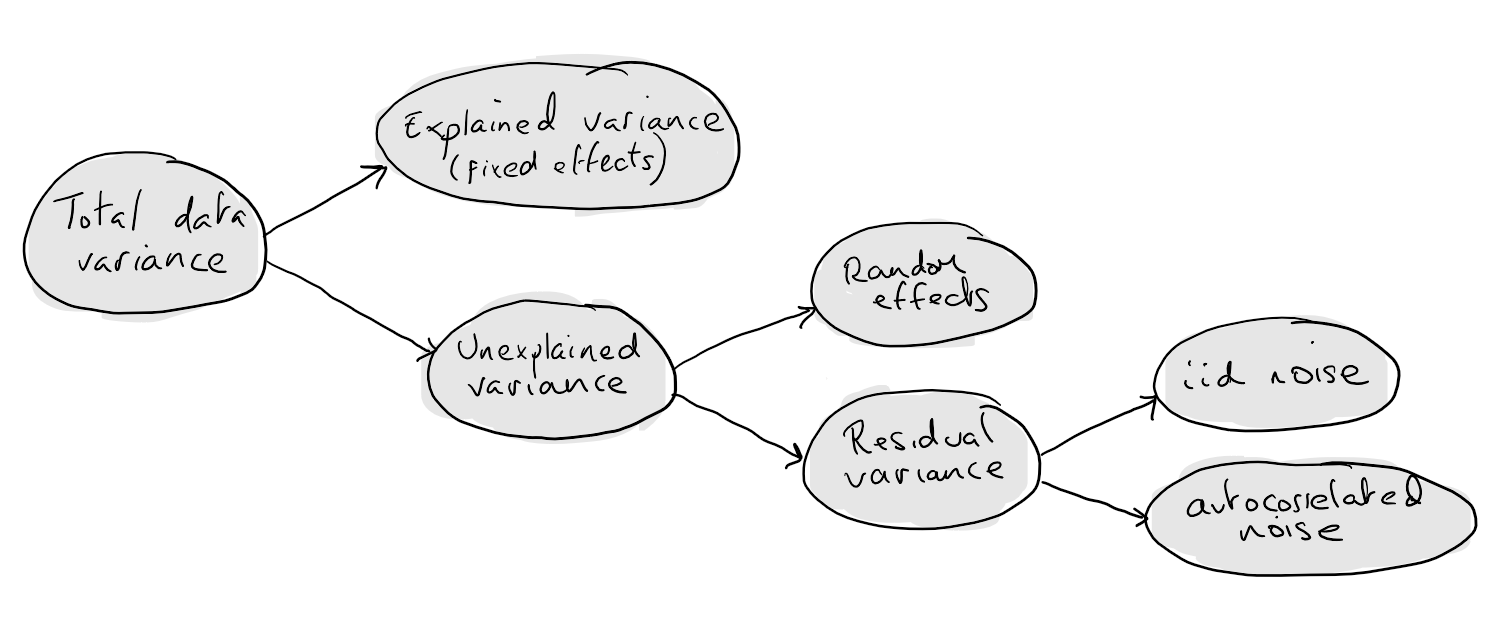 Total data
variance
Explained variance
(fixed effects)
Unexplained
variance
Random
effects
Residual
variance
iid noise
autocorrelated
noise